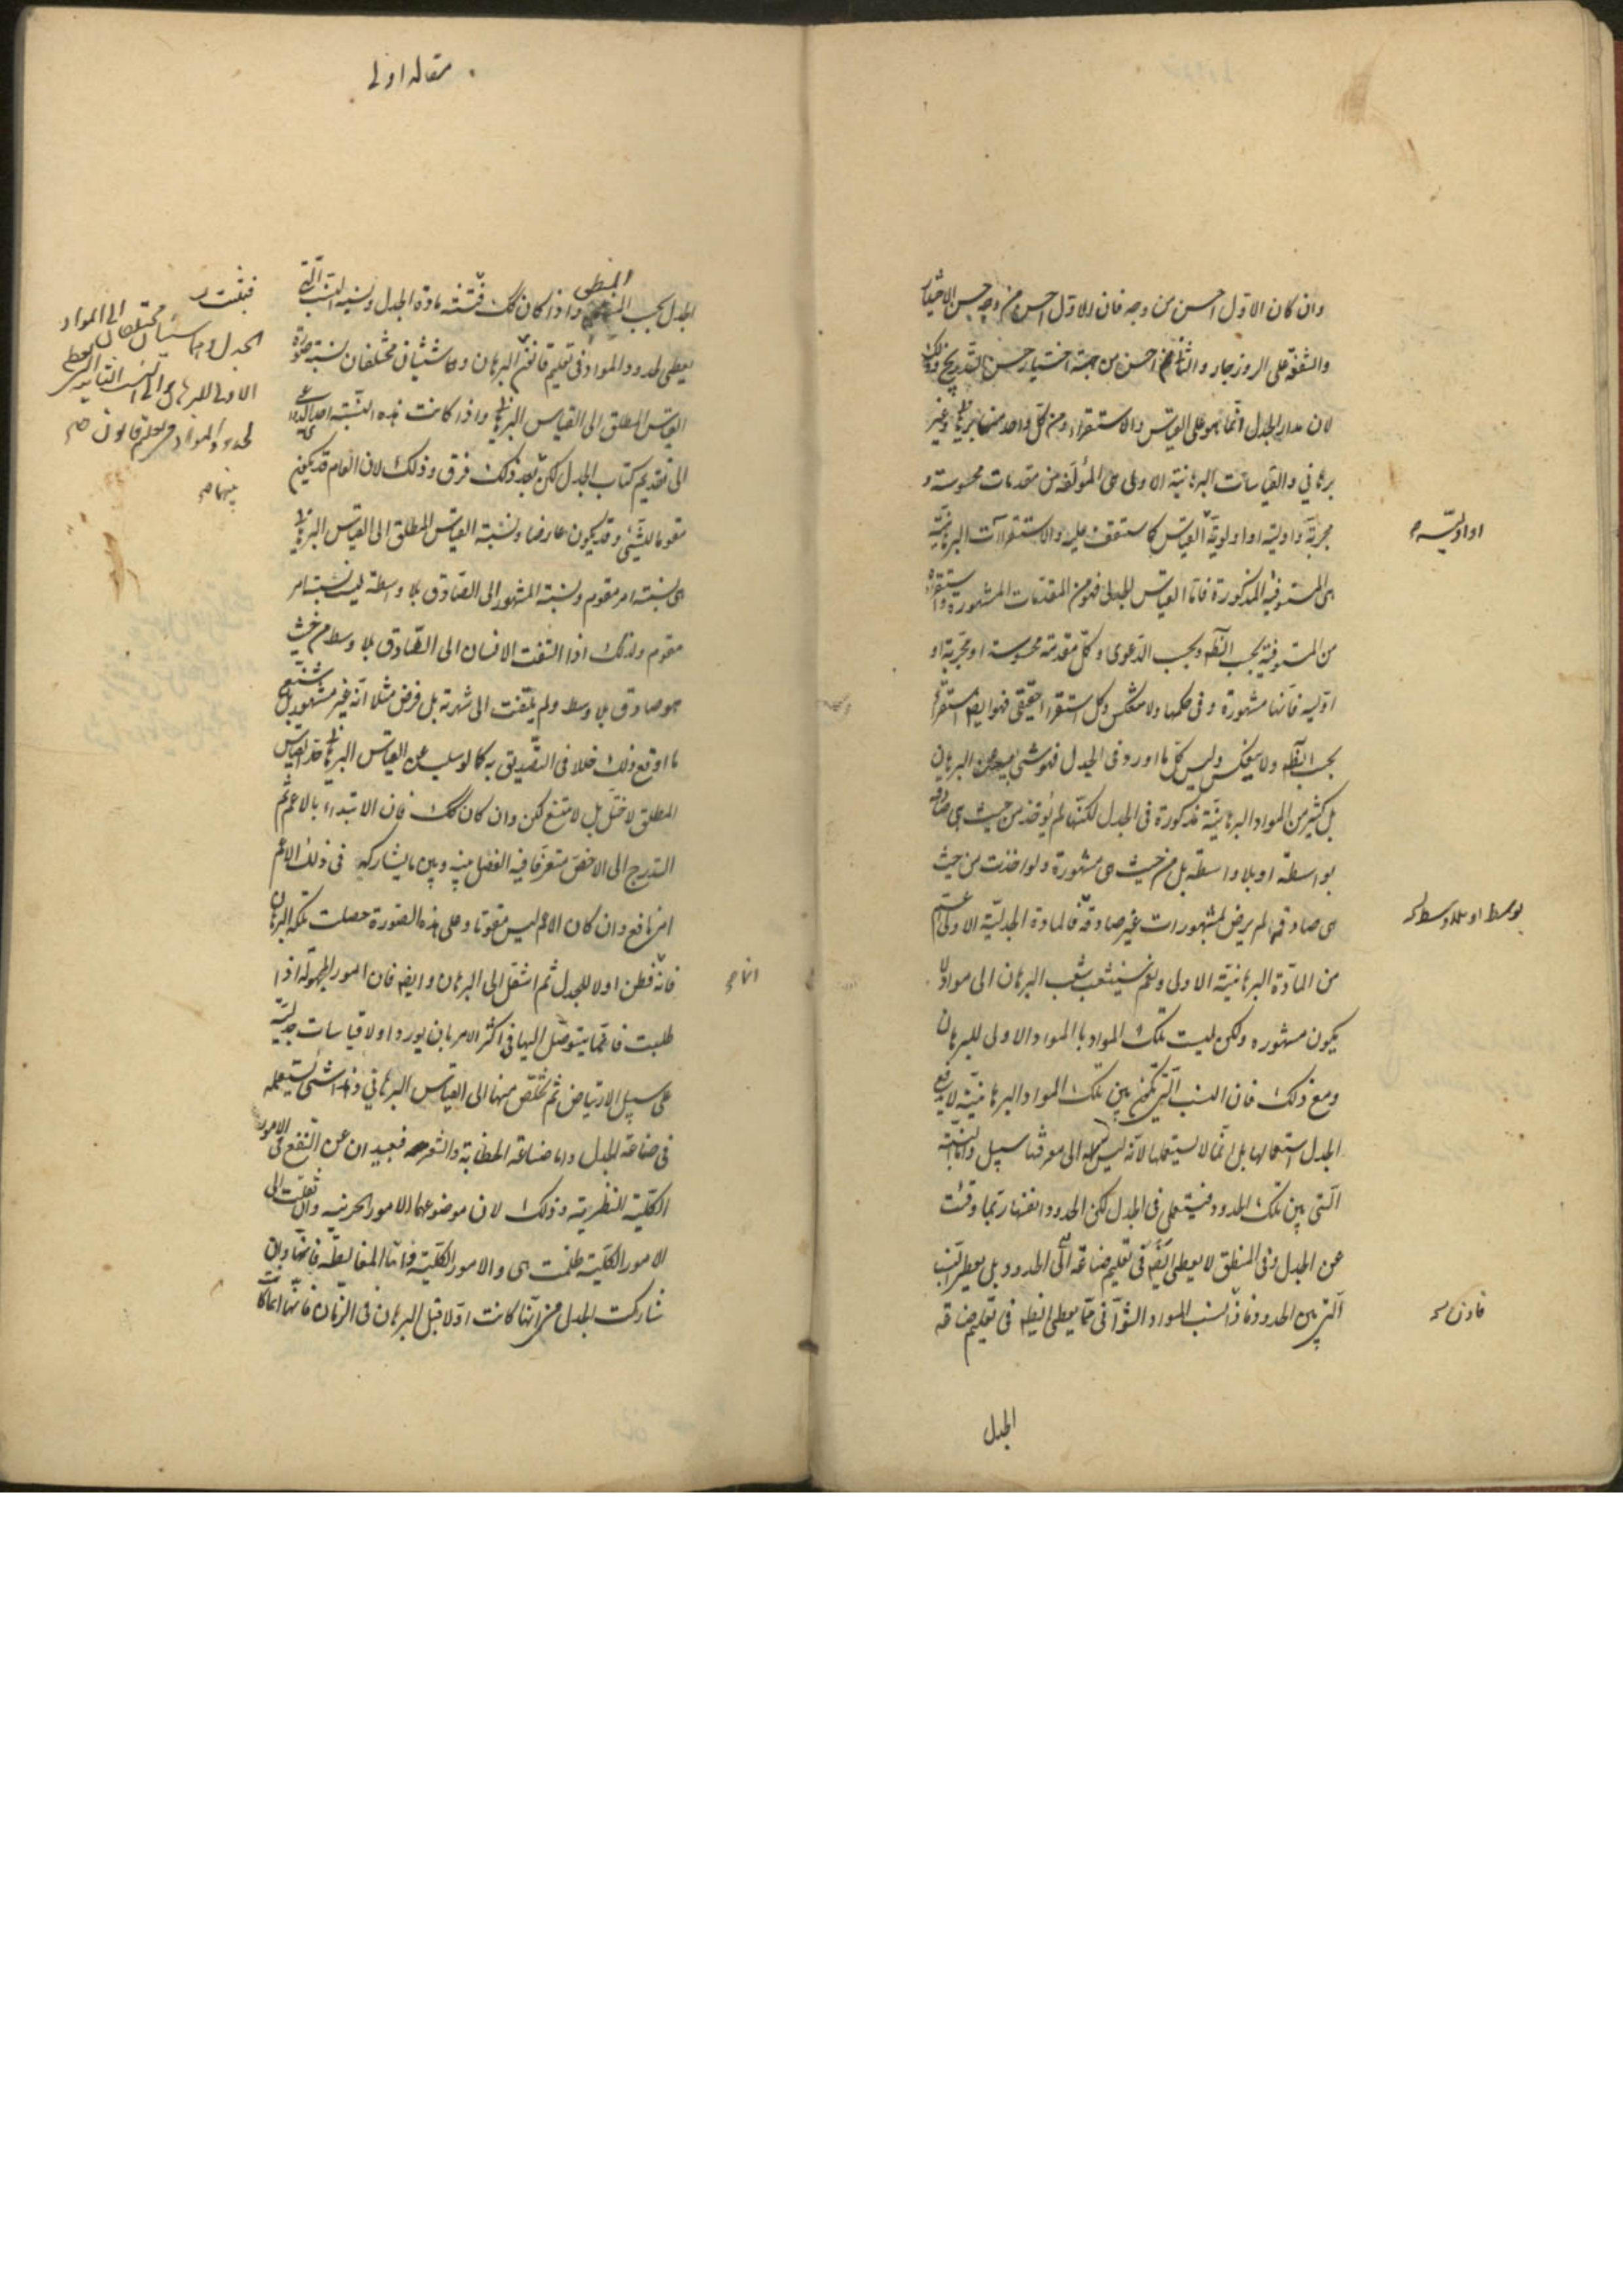 وان كان الاول احسن من وجه فان الاول احسن من وجه حسن الاختيار
والشفقة على الروزجار والثانى احسن من جهة اختيار حسن التدريج وذلك
لان مدار الجدل انما هو على القياس والاستقراء ومن كل واحد منهما برهانى وغير
برهاني والقياسات البرهانية الاولى هى المؤلفة من مقدمات محسوسة و
مجربة واولية او اولوية القياس كما ستقف عليه والاستقراآت البرهانية
هى المستوفية المذكورة فاما القياس الجدلى فهو من المقدمات المشهورة والاستقراء
من المستوفية بحسب الظ وبحسب الدعوى وكل مقدمة محسوسة او مجربة او
اولية فانها مشهورة وفى حكمها ولا ينعكس وكل استقراء حقيقى فهو ايضا استقراء
بحسب الظ ولا ينعكس وليس كل ما اورد فى الجدل فهو شى يبعد عن البرهان
بل كثير من المواد البرهانية مذكورة فى الجدل لكنها لم يؤخذ من حيث هى صادقة
بواسطة او بلا واسطة بل من حيث هى مشهورة ولو اخذت من حيث
هى صادقة لم يرض لمشهورات غير صادقة فالمادة الجدلية الاولى اعم
من المادة البرهانية الاولى ونعم سيتشعب شعب البرهان الى مواد لا
يكون مشهوره ولكن ليست تلك المواد بالمواد الاولى للبرهان
ومع ذلك فان النسب التى تكون بين تلك المواد البرهانية لا يرفع
الجدل استعمالها بل انما لا يستعملها لانه ليس له الى معرفتها سبيل واما النسبة
التى بين تلك الحدود فيستعملها فى الجدل لكن الحدود انفسها ربما وقعت
عن الجدل وفى المنطق لا يعطى ايضا فى تعليم صناعة الى الحدود بل يعطى النسب
التى بين الحدود فاذا نسب المواد الثوانى مما يعطى ايضا فى تعليم صناعة
او اولية
بوسط او بلا وسط
فاذن
الجدل
مقاله اولى
الجدل بحسب المنطقى واذا كان كك فنسبة مادة الجدل ونسبة النسب التى
يعطى لحدود المواد فى تعليم قانون البرهان وكاشيئان مختلفان نسبة صورة
القياس المطلق الى القياس البرهانى واذا كانت هذه النسبة احدى الدواعى
الى تقديم كتاب الجدل لكن بعد ذلك فرق وذلك لان العام قد يكون
مقوما للشئ وقد يكون عارضا ونسبة القياس المطلق الى القياس البرهانى
هى نسبة امر مقوم ونسبة المشهور الى الصادق بلا واسطة ليست نسبة امر
مقوم ولذلك اذا التفت الانسان الى الصادق بلا وسط من حيث
هو صادق بلا وسط ولم يلتفت الى شهرته بل فرض مثلا انه غير مشهور بل شنع
ما اوقع ذلك خللا فى التصديق به كما لو سلب عن القياس البرهانى حد القياس
المطلق لاختل بل لامتنع لكن وان كان كك فان الابتداء بالاعم ثم
التدرج الى الاخص متعرفا فيه الفصل بينه وبين ما يشاركه فى ذلك الاعم
امر نافع وان كان الاعم ليس مقوما وعلى هذه الصورة حصلت ملكة البرهان
فانه فطن اولا للجدل ثم انتقل الى البرهان وايضا فان الامور المجهولة اذا
طلبت فانما يتوصل اليها فى اكثر الامر بان يورد اولا قياسات جدلية
على سبيل الارتياض ثم يخلص منها الى القياس البرهاني وهذا شئ ستعلمه
فى صناعة الجدل واما صناعة الخطابة والشعر فبعيدان عن النفع فى الامور
الكلية النظرية وذلك لان موضوعهما الامور الجزئية وان نقلت الى
الامور الكلية ظلمت هى والامور الكلية واما المغالطة فانها وان
شاركت الجدل من انها كانت اولا قبل البرهان فى الزمان فانها انما كانت
فبقيت
الى المواد
الجدل وهما شيئان مختلفان
الاولى للبرهان والى النسب التى يعطى
لحدود المواد فى تعليم قانون
بينهما
انما